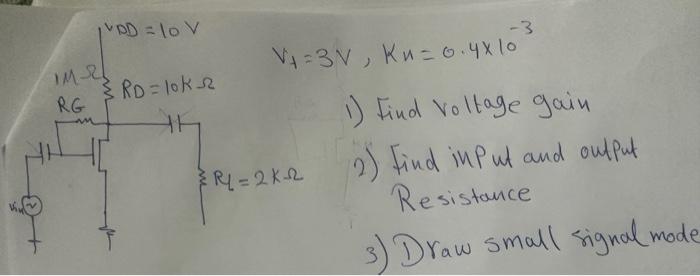 VDD = 10 V
Vt = 3V, Kn = 0.4x10^-3
1MΩ
RD = 10KΩ
RG
1) Find Voltage gain
2) Find input and output
Resistance
RL = 2KΩ
Vin
3) Draw small signal mode